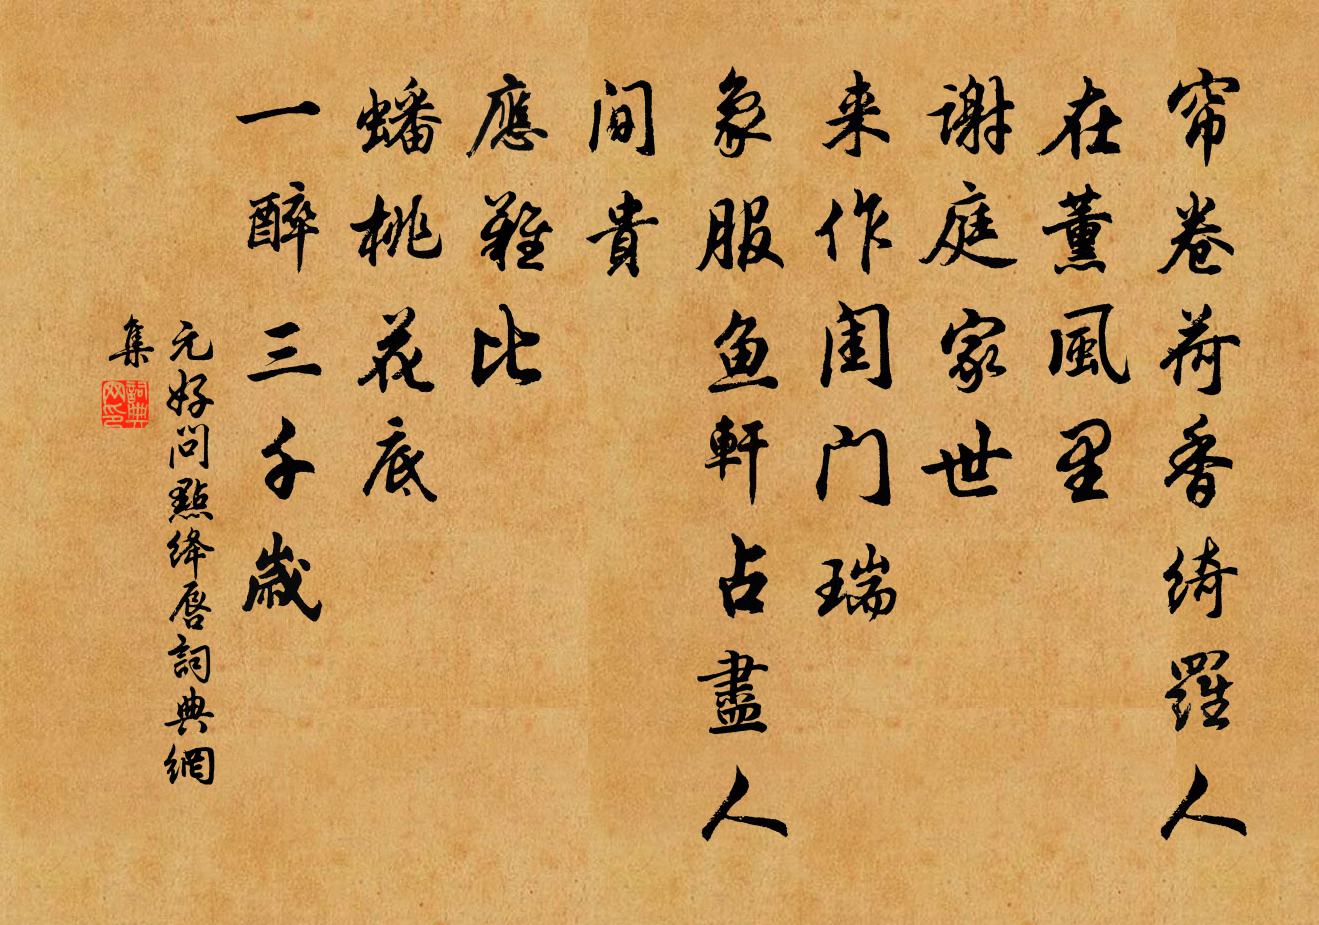 帘卷荷香綺羅人
在薰風里
謝庭家世
来作閨门瑞
象服鱼軒占盡人
間貴
應難比
蟠桃花底
一醉三千歲
元好問點絳唇詞典網
集
詞典网印